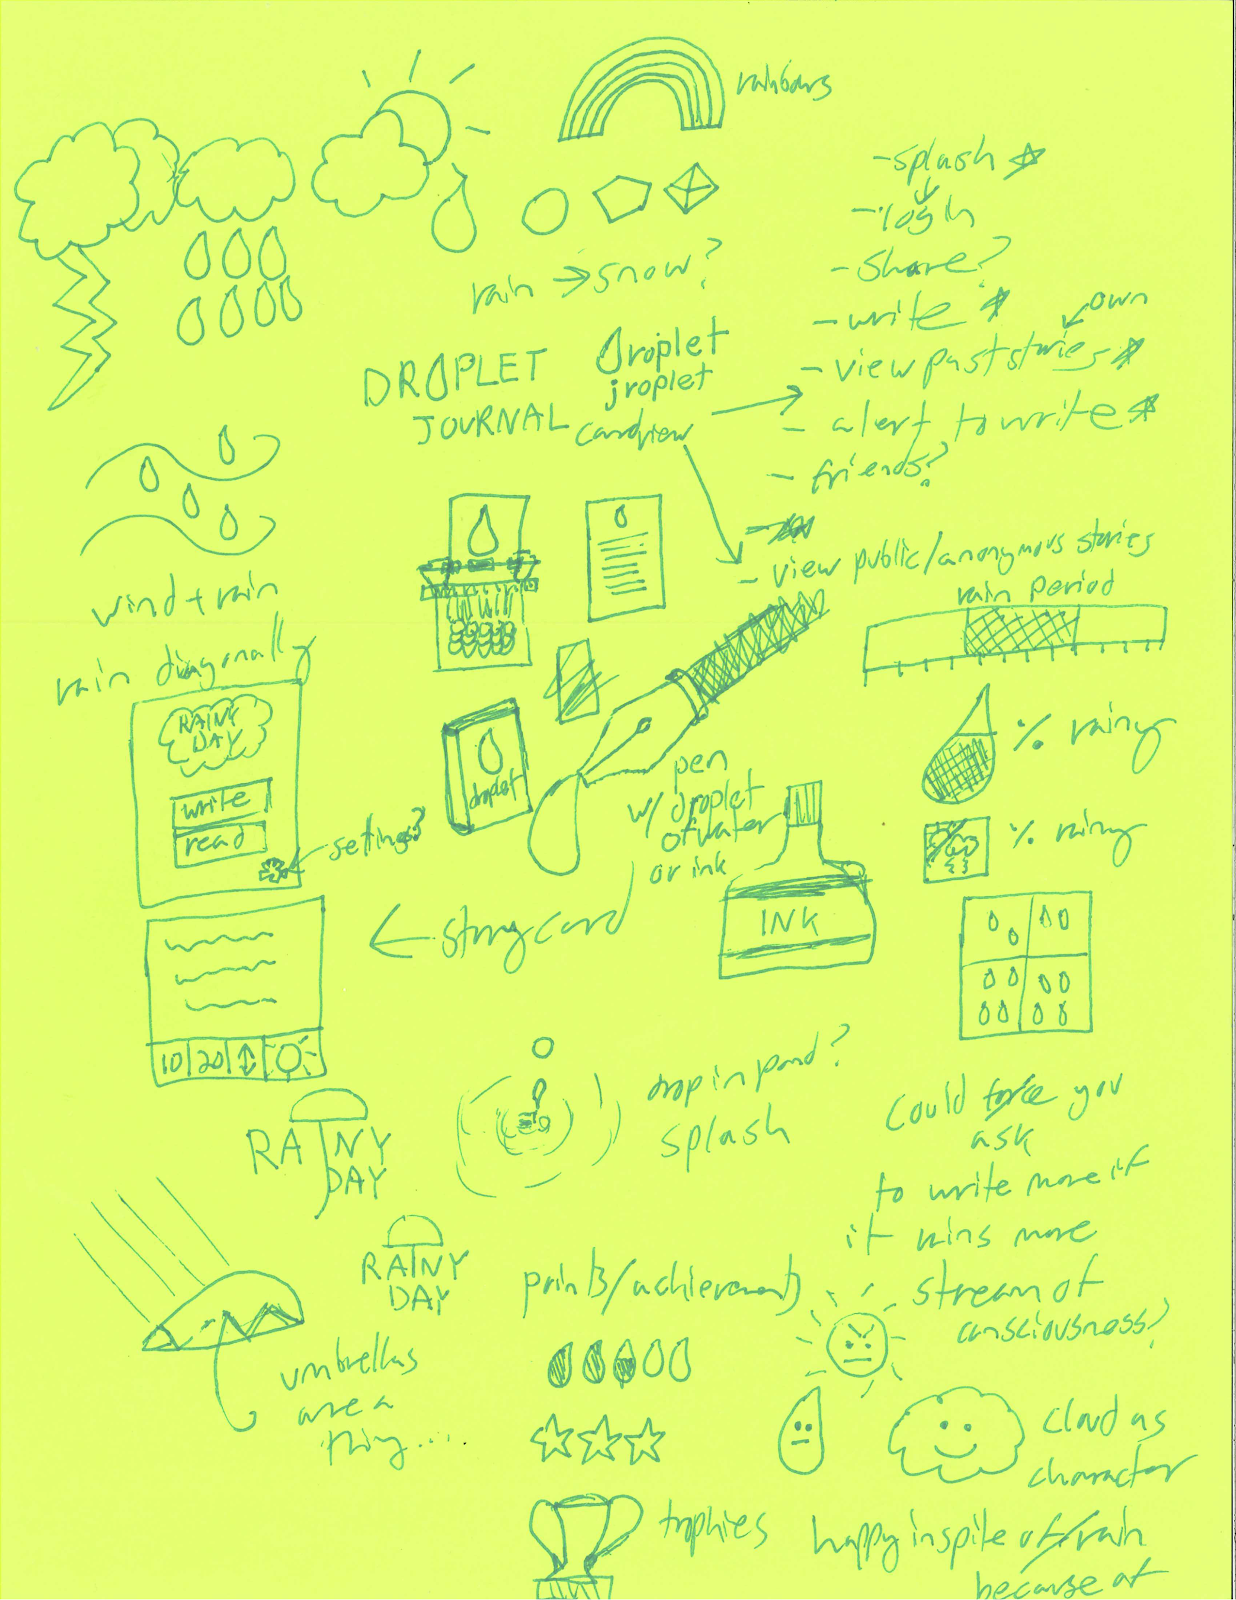 rainbows
-splash
-login
rain → snow?
-share?
-write
own
DROPLET
JOURNAL
Droplet
jroplet
cardview
-view past stories
- alert to write
- friends?
- view public/anonymous stories
rain period
wind + rain
rain diagonally
RAINY
DAY
write
read
settings?
droplet
pen
w/ droplet
of water
or ink
% rainy
% rainy
INK
← story card
10 20
drop in pond?
splash
RAINY
DAY
Could force you
ask
to write more if
it rains more
RAINY
DAY
points/achievements
stream of
consciousness?
umbrellas
are a
thing....
cloud as
character
trophies
happy in spite of/rain
because of